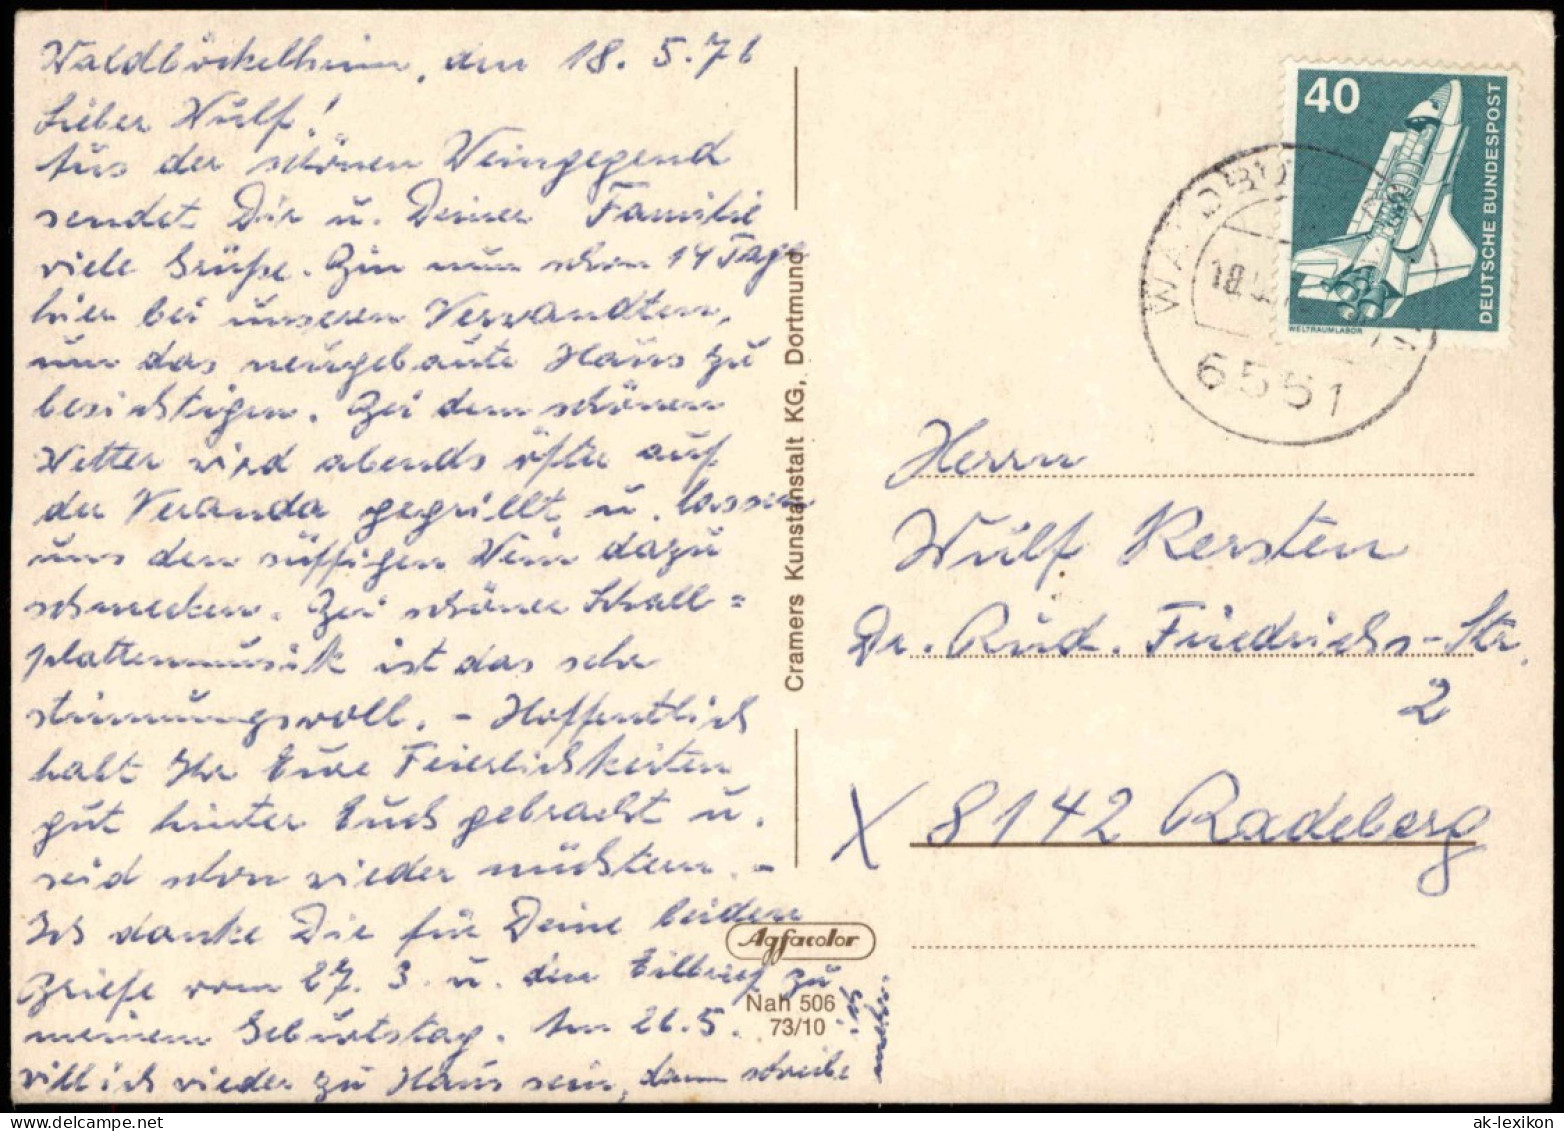 Waldböckelheim, den 18.5.76
Lieber Wulf!
Aus der schönen Weingegend
sendet Dir u. Deiner Familie
viele Grüße. Bin nun schon 14 Tage
hier bei unseren Verwandten,
um das neugebaute Haus zu
besichtigen. Bei dem schönen
Wetter wird abends öfter auf
der Veranda gegrillt u. lassen
uns den süffigen Wein dazu
schmecken. Bei schöner Schall=
plattenmusik ist das sehr
stimmungsvoll. - Hoffentlich
habt Ihr Eure Feierlichkeiten
gut hinter Euch gebracht u.
seid schon wieder nüchtern. -
Ich danke Dir für Deine beiden
Briefe vom 27. 3. u. den Eilbrief zu
meinem Geburtstag. Am 26.5.
will ich wieder zu Haus sein, dann schreibe
ich
mehr.
Cramers Kunstanstalt KG, Dortmund
Agfacolor
Nah 506
73/10
40
DEUTSCHE BUNDESPOST
WELTRAUMLABOR
6551
Herrn
Wulf Kersten
Dr. Rud. Friedrichs-Str.
2
X 8142 Radeberg
ak-lexikon